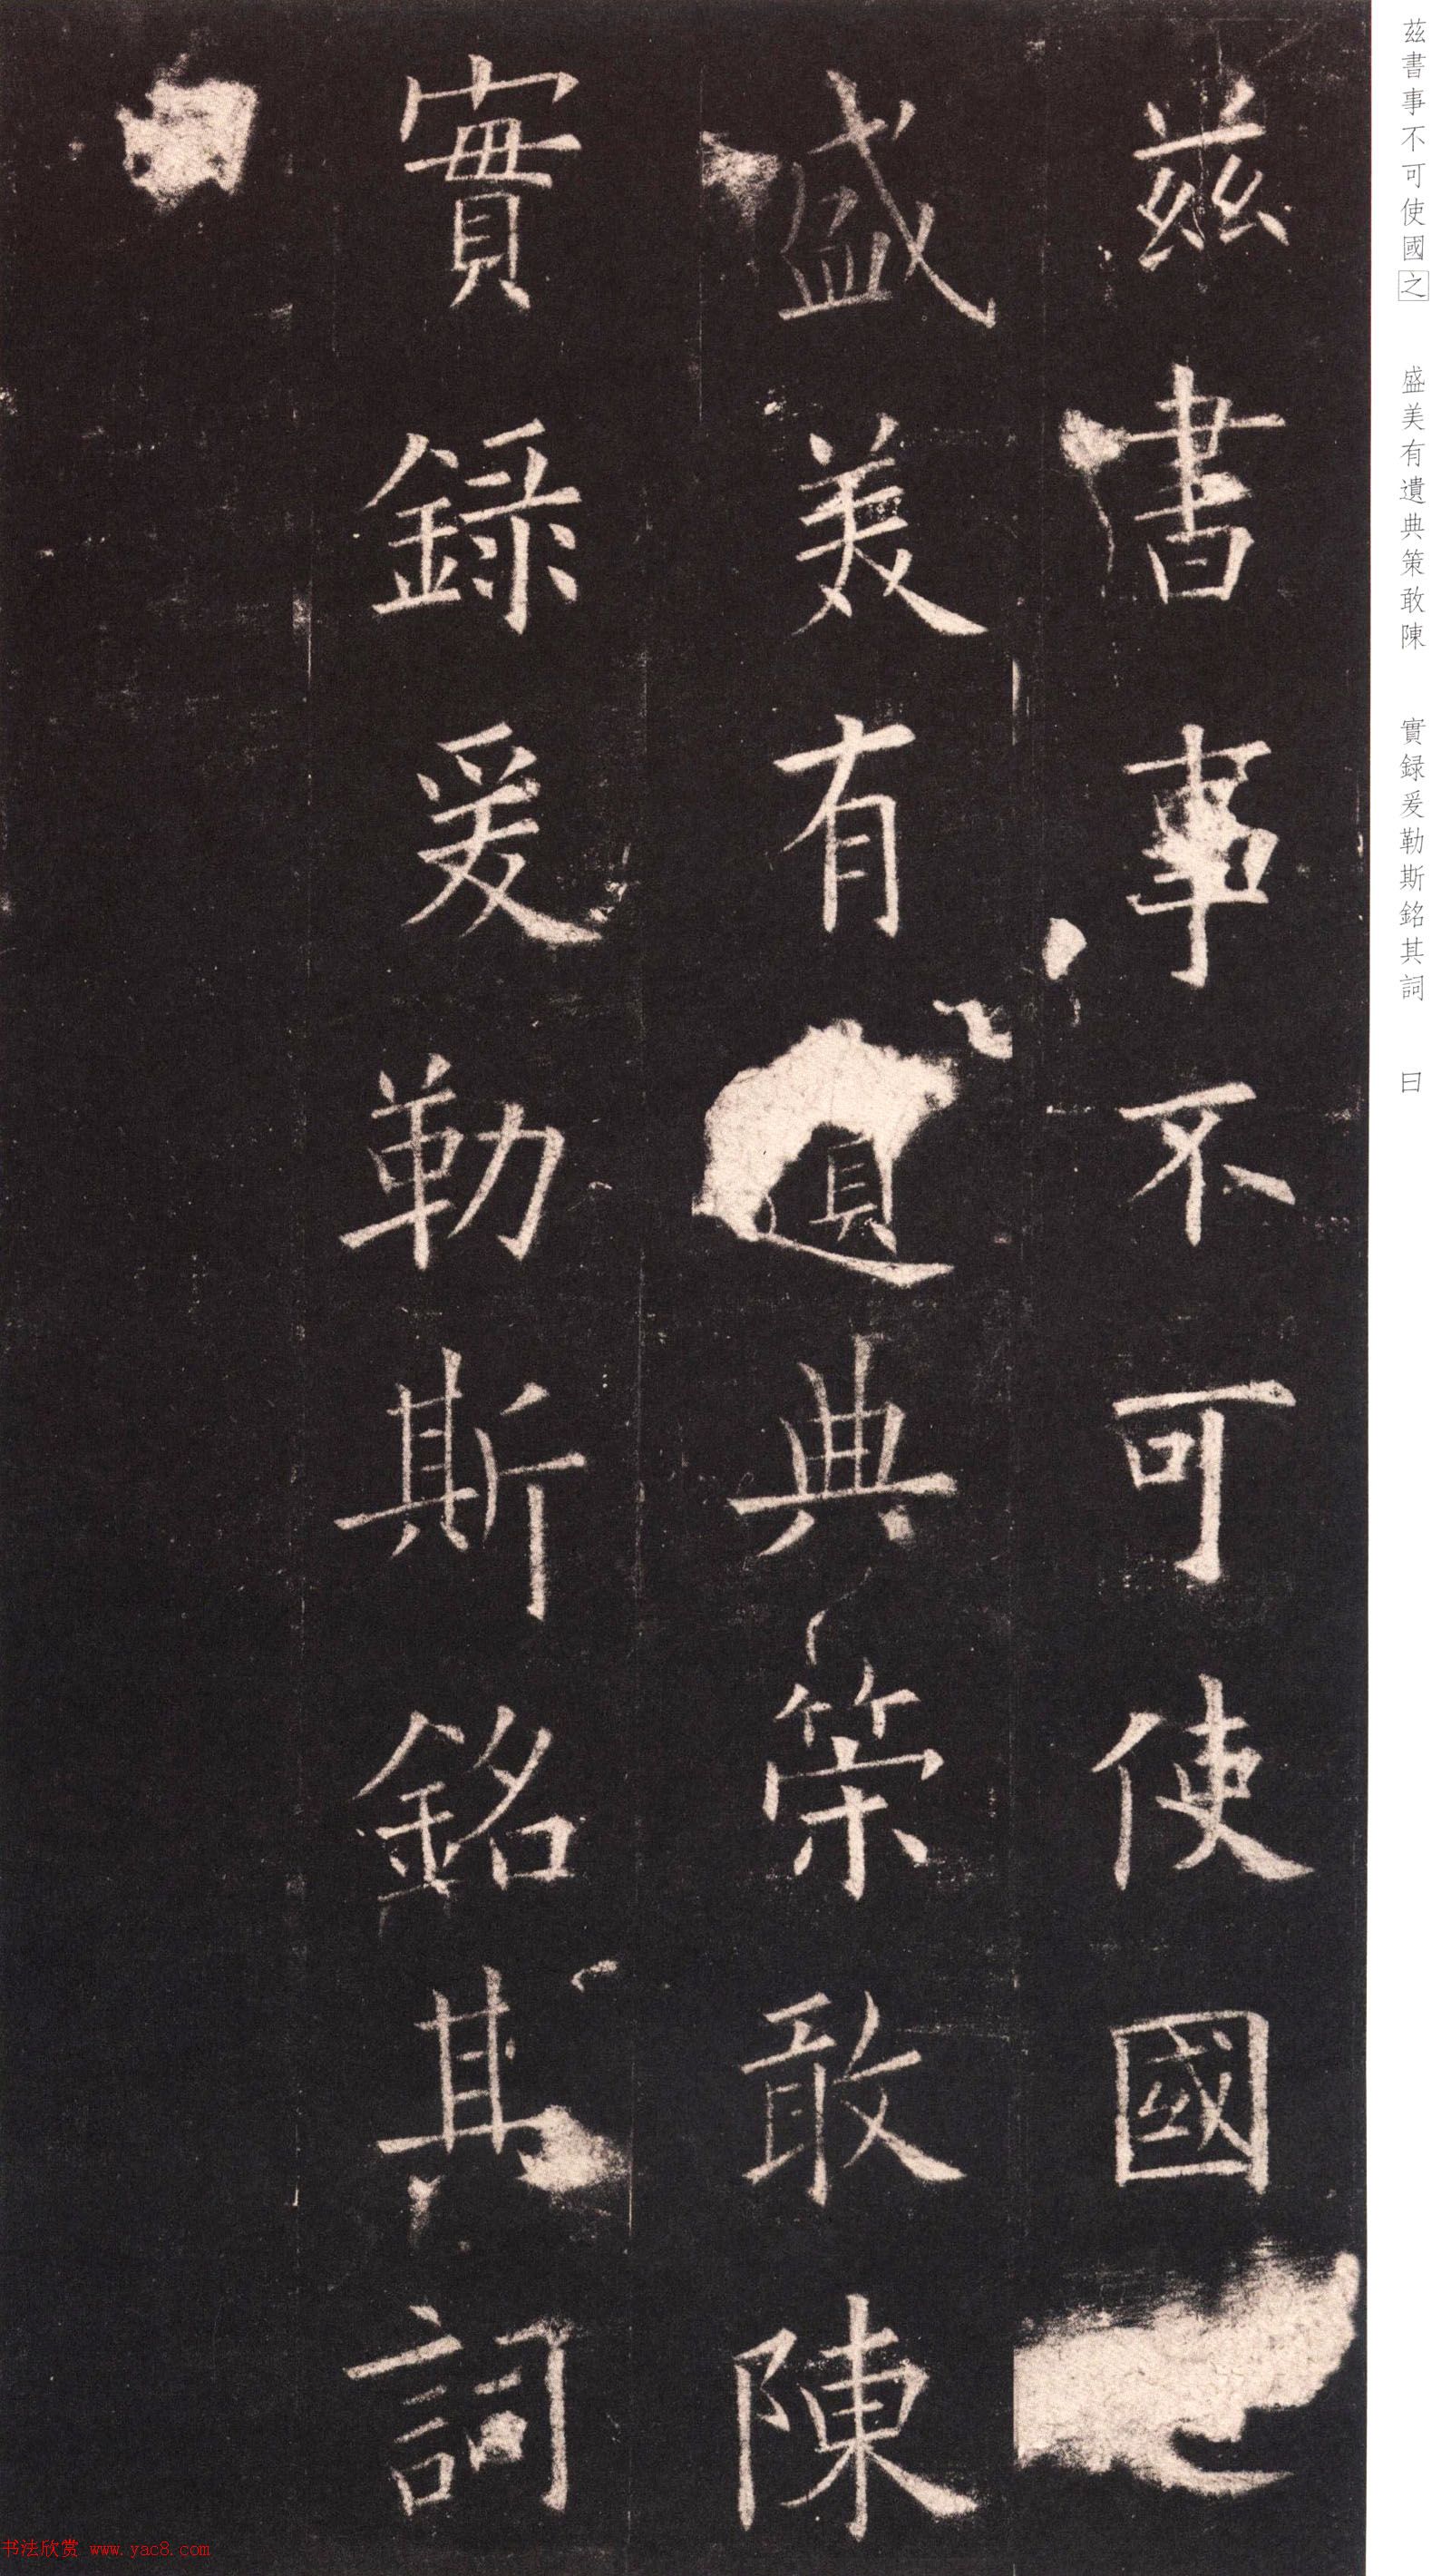 茲書事不可使國
盛美有遺典策敢陳
實錄爰勒斯銘其詞
茲書事不可使國之 盛美有遺典策敢陳 實録爰勒斯銘其詞 曰
书法欣赏 www.yac8.com